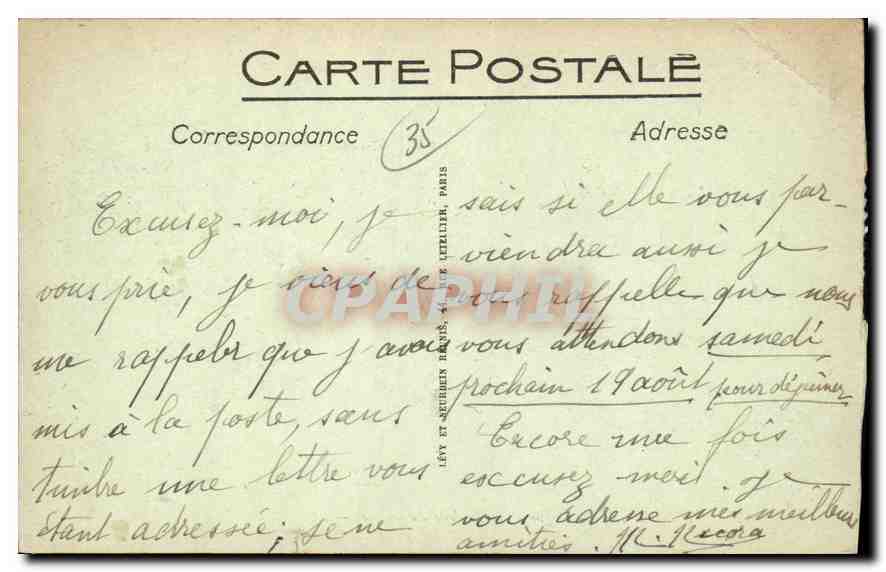 CARTE POSTALE
Correspondance
35
Adresse
Excusez-moi, je
vous prie, je viens de
me rappeler que j'avais
mis à la poste, sans
timbre une lettre vous
étant adressée; je ne
LÉVY ET NEURDEIN RÉUNIS, 44, RUE LETELLIER, PARIS
sais si elle vous par-
viendra aussi je
vous rappelle que nous
vous attendons samedi
prochain 19 août pour déjeuner
Encore une fois
excusez moi. Je
vous adresse mes meilleurs
amitiés. M.
CPAPHIL